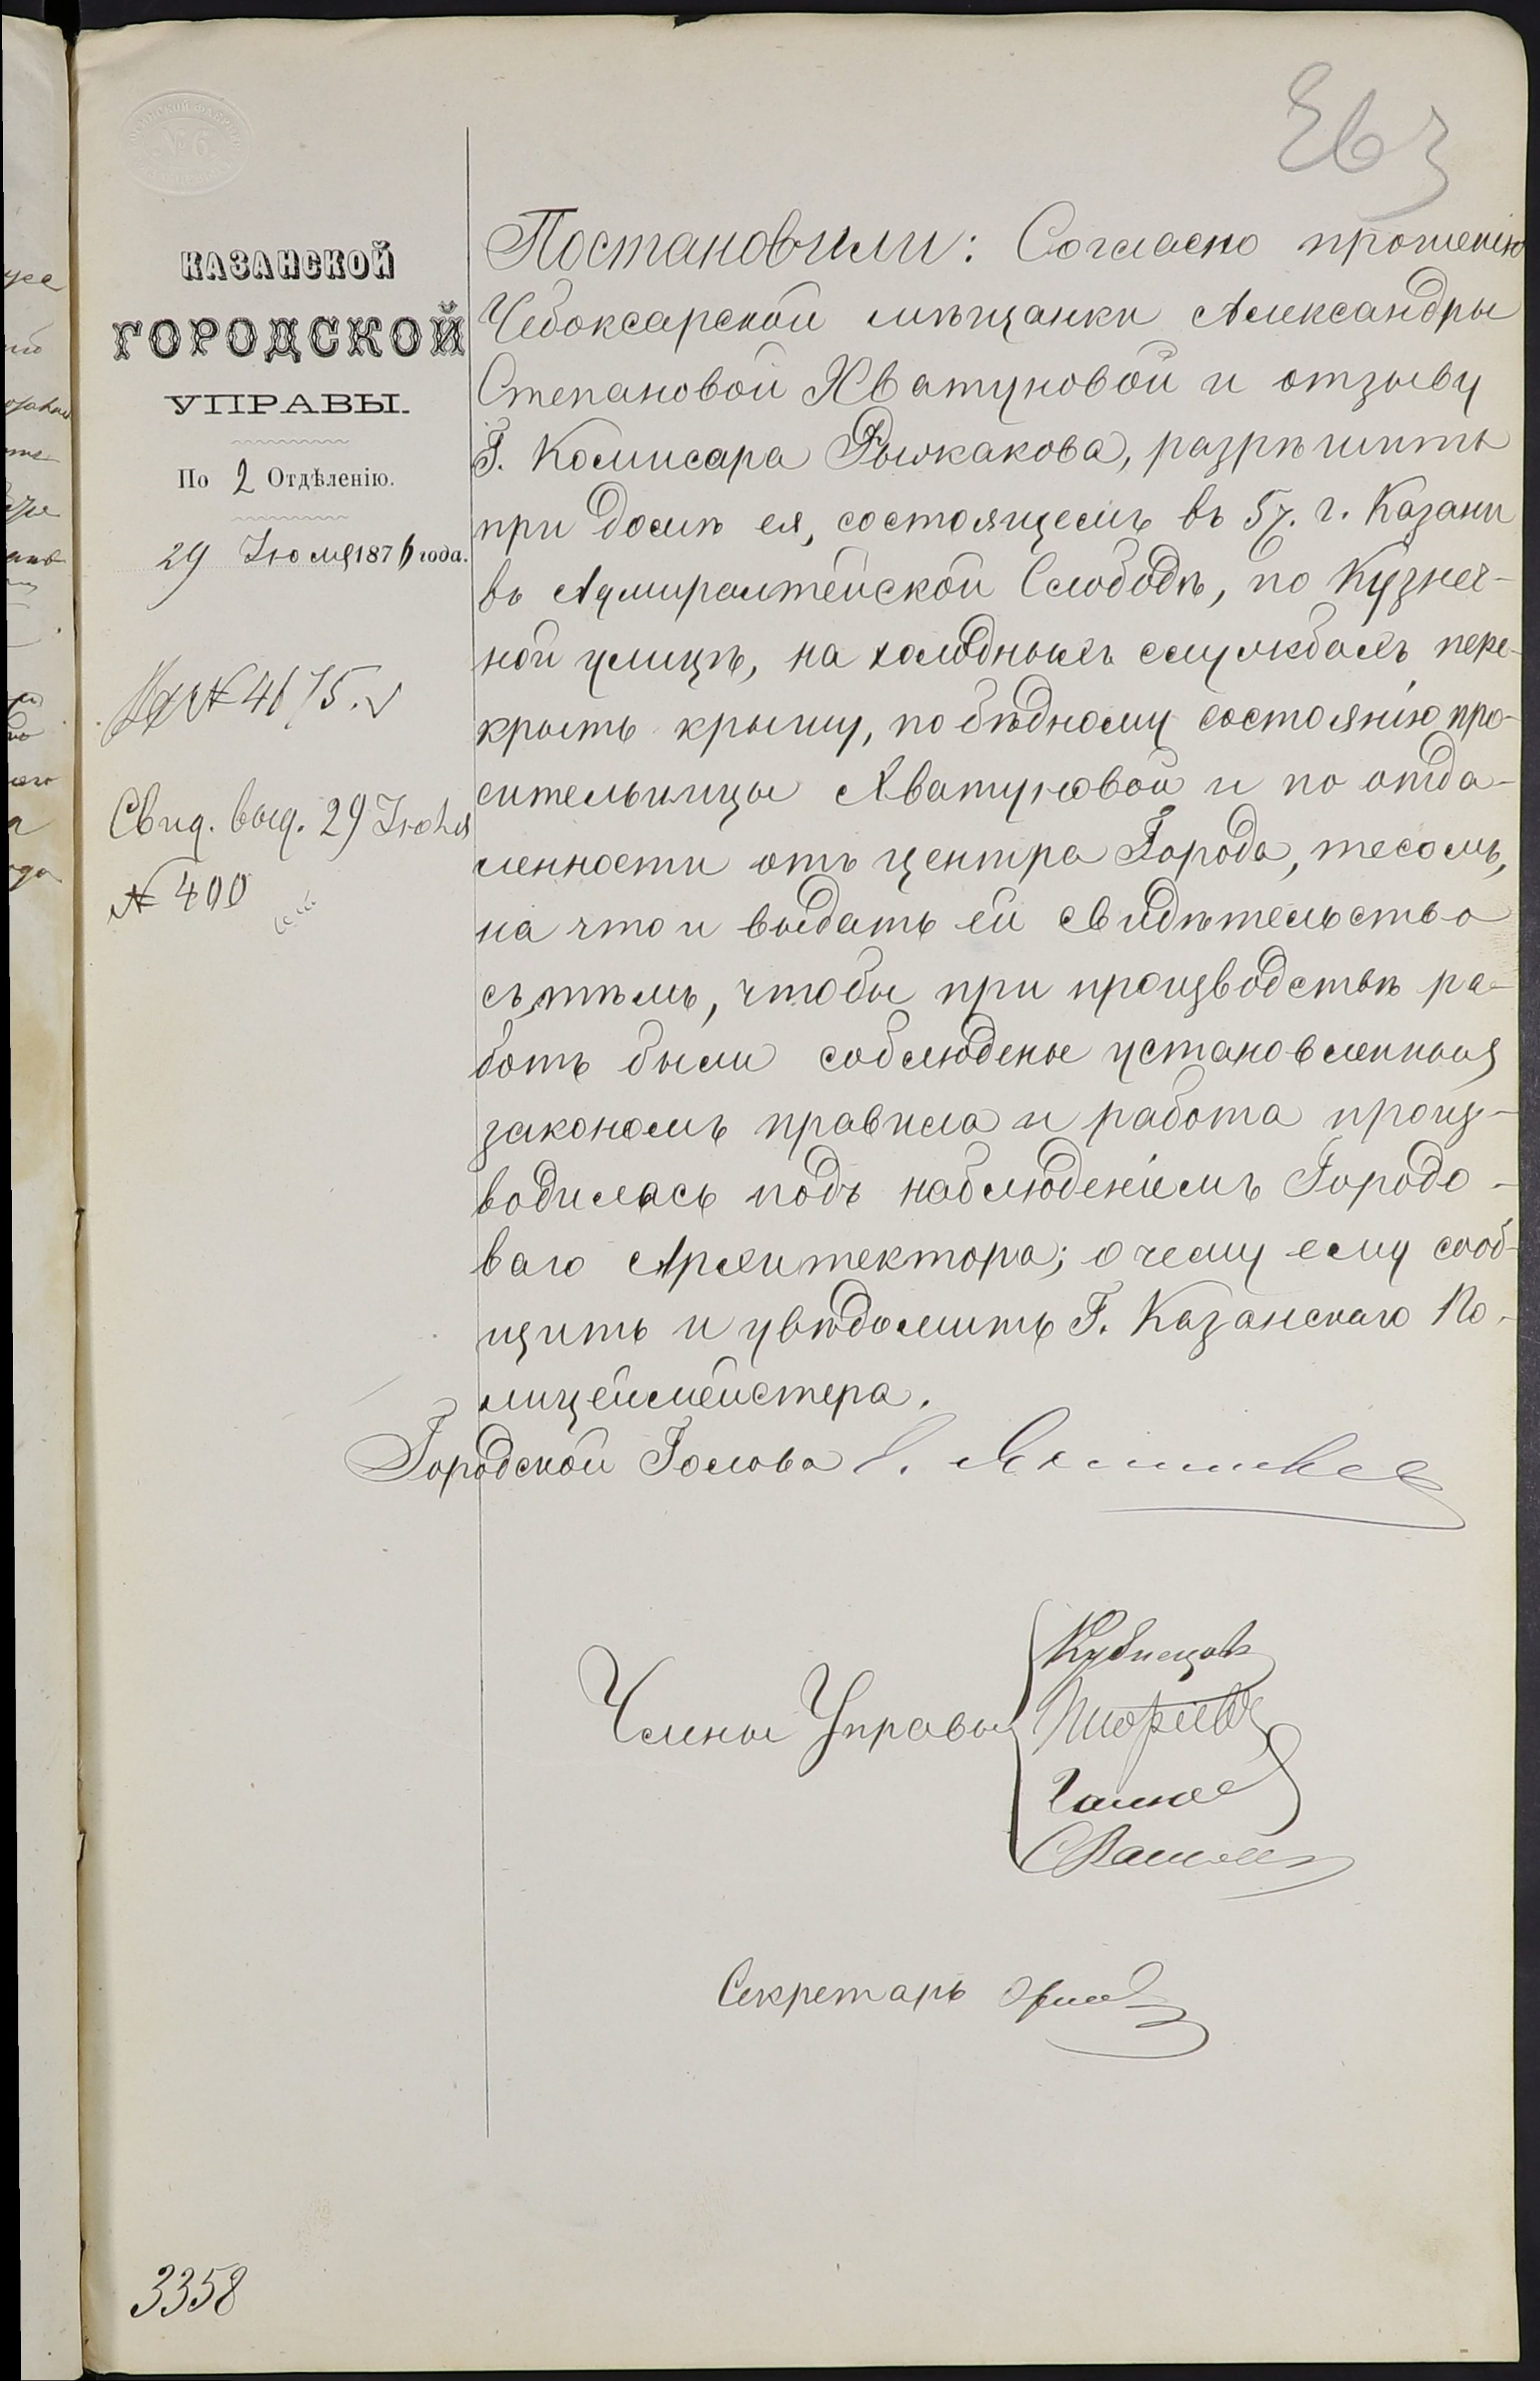 № 6
КАЗАНСКОЙ
ГОРОДСКОЙ
УПРАВЫ.
По 2 Отдѣленію.
29 Іюня 1876 года.
№ 4675.
Свид. выд. 29 Іюня
№ 400
Постановили: Согласно прошенію
Чебоксарской мѣщанки Александры
Степановой Хватуновой и отзыву
Г. Комисара Рыжакова, разрѣшить
при домѣ ея, состоящемъ въ 5 ч. г. Казани
въ Адмиралтейской Слободѣ, по Кузнеч-
ной улицѣ, на холодныхъ службахъ пере-
крыть крышу, по бѣдному состоянію про-
сительницы Хватуновой и по отда-
ленности отъ центра Города, тесомъ,
на что и выдать ей свидѣтельство
съ тѣмъ, чтобы при производствѣ ра-
ботъ были соблюдены установленныя
закономъ правила и работа произ-
водилась подъ наблюденіемъ Городо-
ваго Архитектора; о чемъ ему сооб-
щить и увѣдомить Г. Казанскаго По-
лицеймейстера.
Городской Голова
Члены Управы
Кузнецовъ
Секретарь
3358